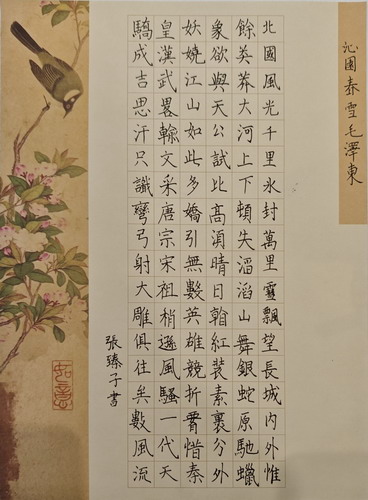 沁園春雪毛澤東
北國風光千里冰封萬里雪飄望長城內外惟
餘莽莽大河上下頓失滔滔山舞銀蛇原馳蠟
象欲與天公試比高須晴日看紅裝素裹分外
妖嬈江山如此多嬌引無數英雄競折腰惜秦
皇漢武畧輸文采唐宗宋祖稍遜風騷一代天
驕成吉思汗只識彎弓射大雕俱往矣數風流
張臻子書
如意